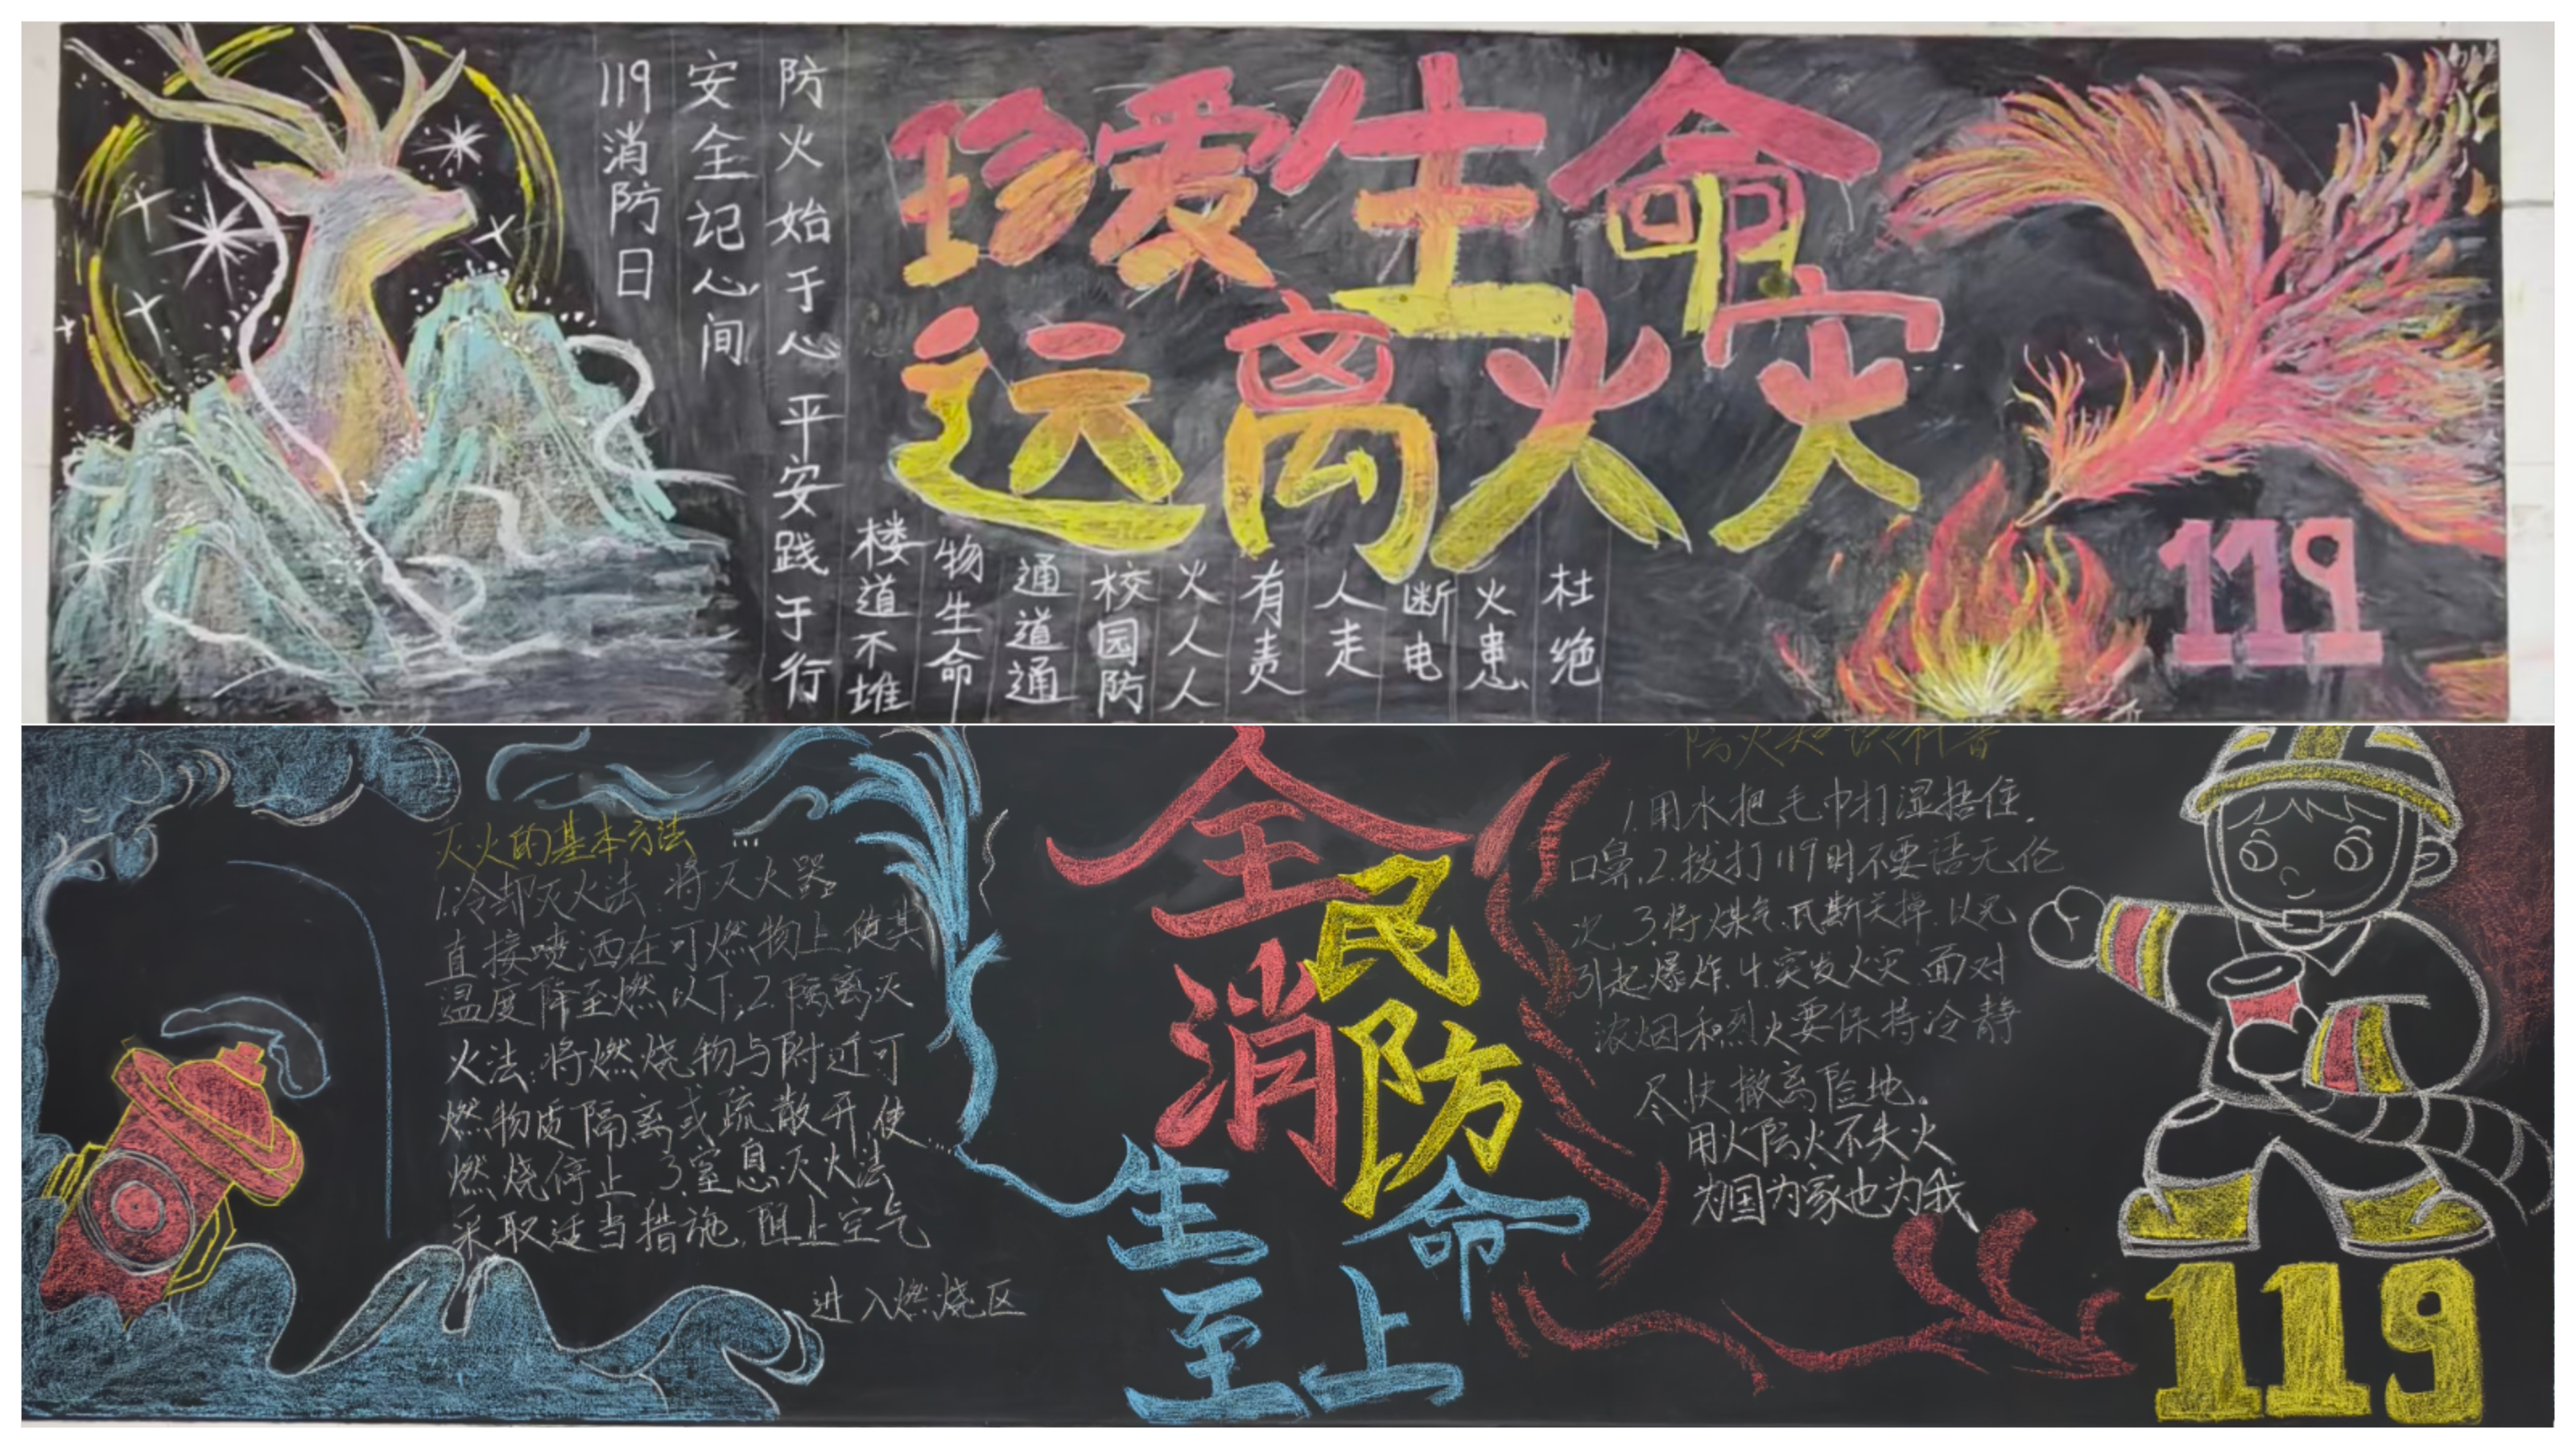 119消防日
安全记心间
防火始于心 平安践于行
珍爱生命
远离火灾
楼道不堆
物生命
通道通
校园防
火人人
有责
人走
断电
火患
杜绝
119
灭火的基本方法
1.冷却灭火法:将灭火器
直接喷洒在可燃物上,使其
温度降至燃以下;2.隔离灭
火法:将燃烧物与附近可
燃物质隔离或疏散开,使
燃烧停止 3.窒息灭火法
采取适当措施,阻止空气
进入燃烧区
全民
消防
生命
至上
防火知识科普
1.用水把毛巾打湿捂住.
口鼻.2.拨打119时不要语无伦
次.3.将煤气.瓦斯关掉.以免
引起爆炸.4.突发火灾.面对
浓烟和烈火要保持冷静
尽快撤离险地。
用火防火不失火
为国为家也为我
119